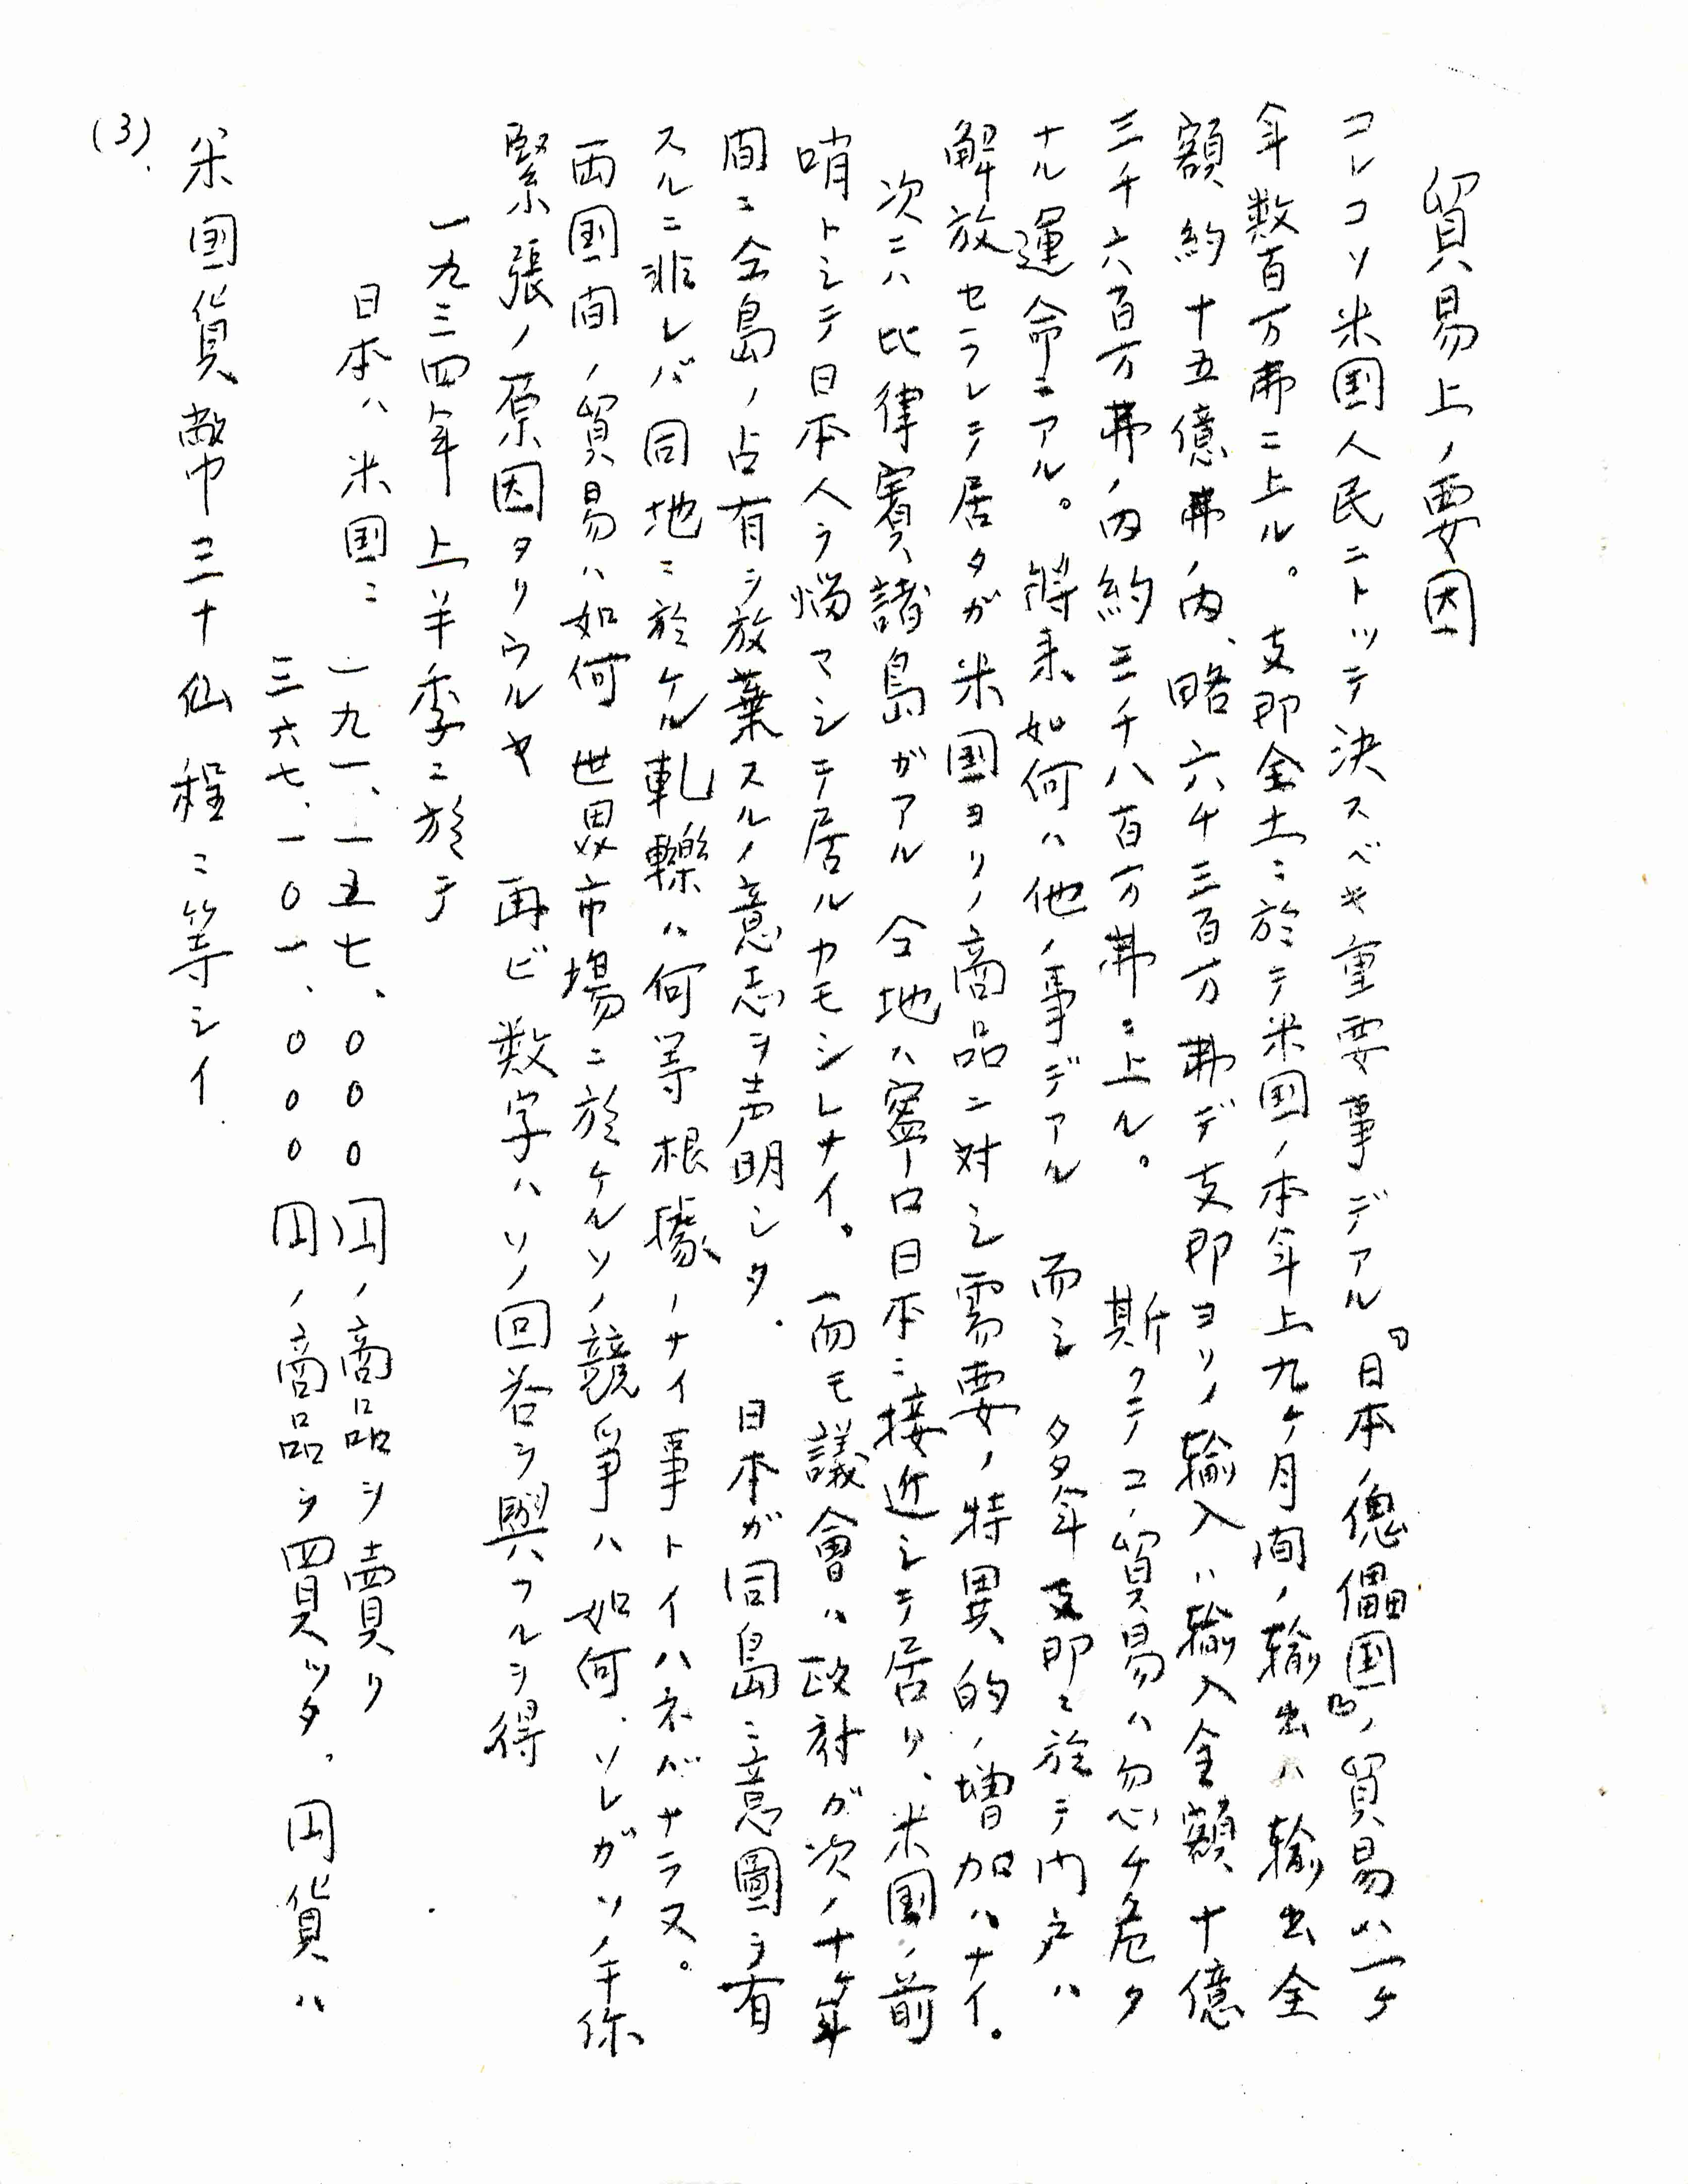 貿易上ノ要因
コレコソ米国人民ニトッテ決スベキ重要事デアル『日本ノ傀儡国』ノ貿易ハ一ケ
年数百万弗ニ上ル。支那全土ニ於テ米国ノ本年上九ケ月間ノ輸出ハ輸出全
額約十五億弗ノ内、略六千三百万弗デ支那ヨリノ輸入ハ輸入全額十億
三千六百万弗ノ内約三千八百万弗ニ上ル。斯クテコノ貿易ハ忽チ危タ
ナル運命ニアル。将来如何ハ他ノ事デアル 而シ 多年支那ニ於テ内戸ハ
解放セラレテ居タガ米国ヨリノ商品ニ対シ需要ノ特異的ノ増加ハナイ。
次ニハ比律賓諸島ガアル 仝地ハ寧ロ日本ニ接近シテ居リ、米国ノ前
哨トシテ日本人ヲ悩マシテ居ルカモシレナイ。而モ議會ハ政府ガ次ノ十年
間ニ仝島ノ占有ヲ放棄スルノ意志ヲ声明シタ。日本ガ同島ニ意圖ヲ有
スルニ非レバ同地ニ於ケル軋轢ハ何等根據ノナイ事トイハネバナラヌ。
両国間ノ貿易ハ如何 世界市場ニ於ケルソノ競爭ハ如何、ソレガソノ手
緊張ノ原因タリウルヤ 再ビ数字ハソノ回答ヲ與フルヲ得
一九三四年上半季ニ於テ
日本ハ米国ニ 一九一、一五七、000円ノ商品ヲ賣リ
三六七、一0一、000円ノ商品ヲ買ッタ。円貨ハ
米国貨幣三十仙程ニ等シイ
(3)